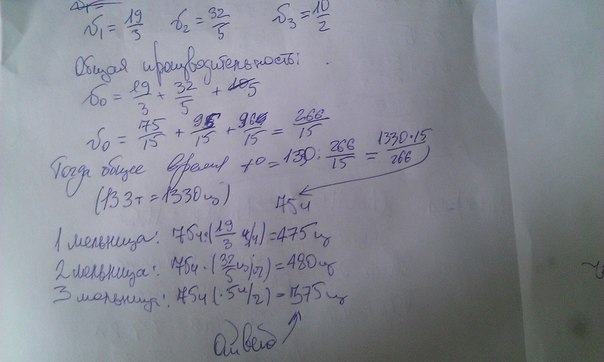 v₁ = 19/3 v₂ = 32/5 v₃ = 10/2
Общая производительность:
v₀ = 19/3 + 32/5 + 5
v₀ = 75/15 + 95/15 + 96/15 = 266/15
Тогда общее время t₀ = 1330 : 266/15 = 1330·15/266
(133т = 1330ц) 75ч
1 мельница: 75ч·(19/3 ц/ч) = 475ц
2 мельница: 75ч·(32/5 ц/ч) = 480ц
3 мельница: 75ч(·5ч/2) = 375ц
Ответ